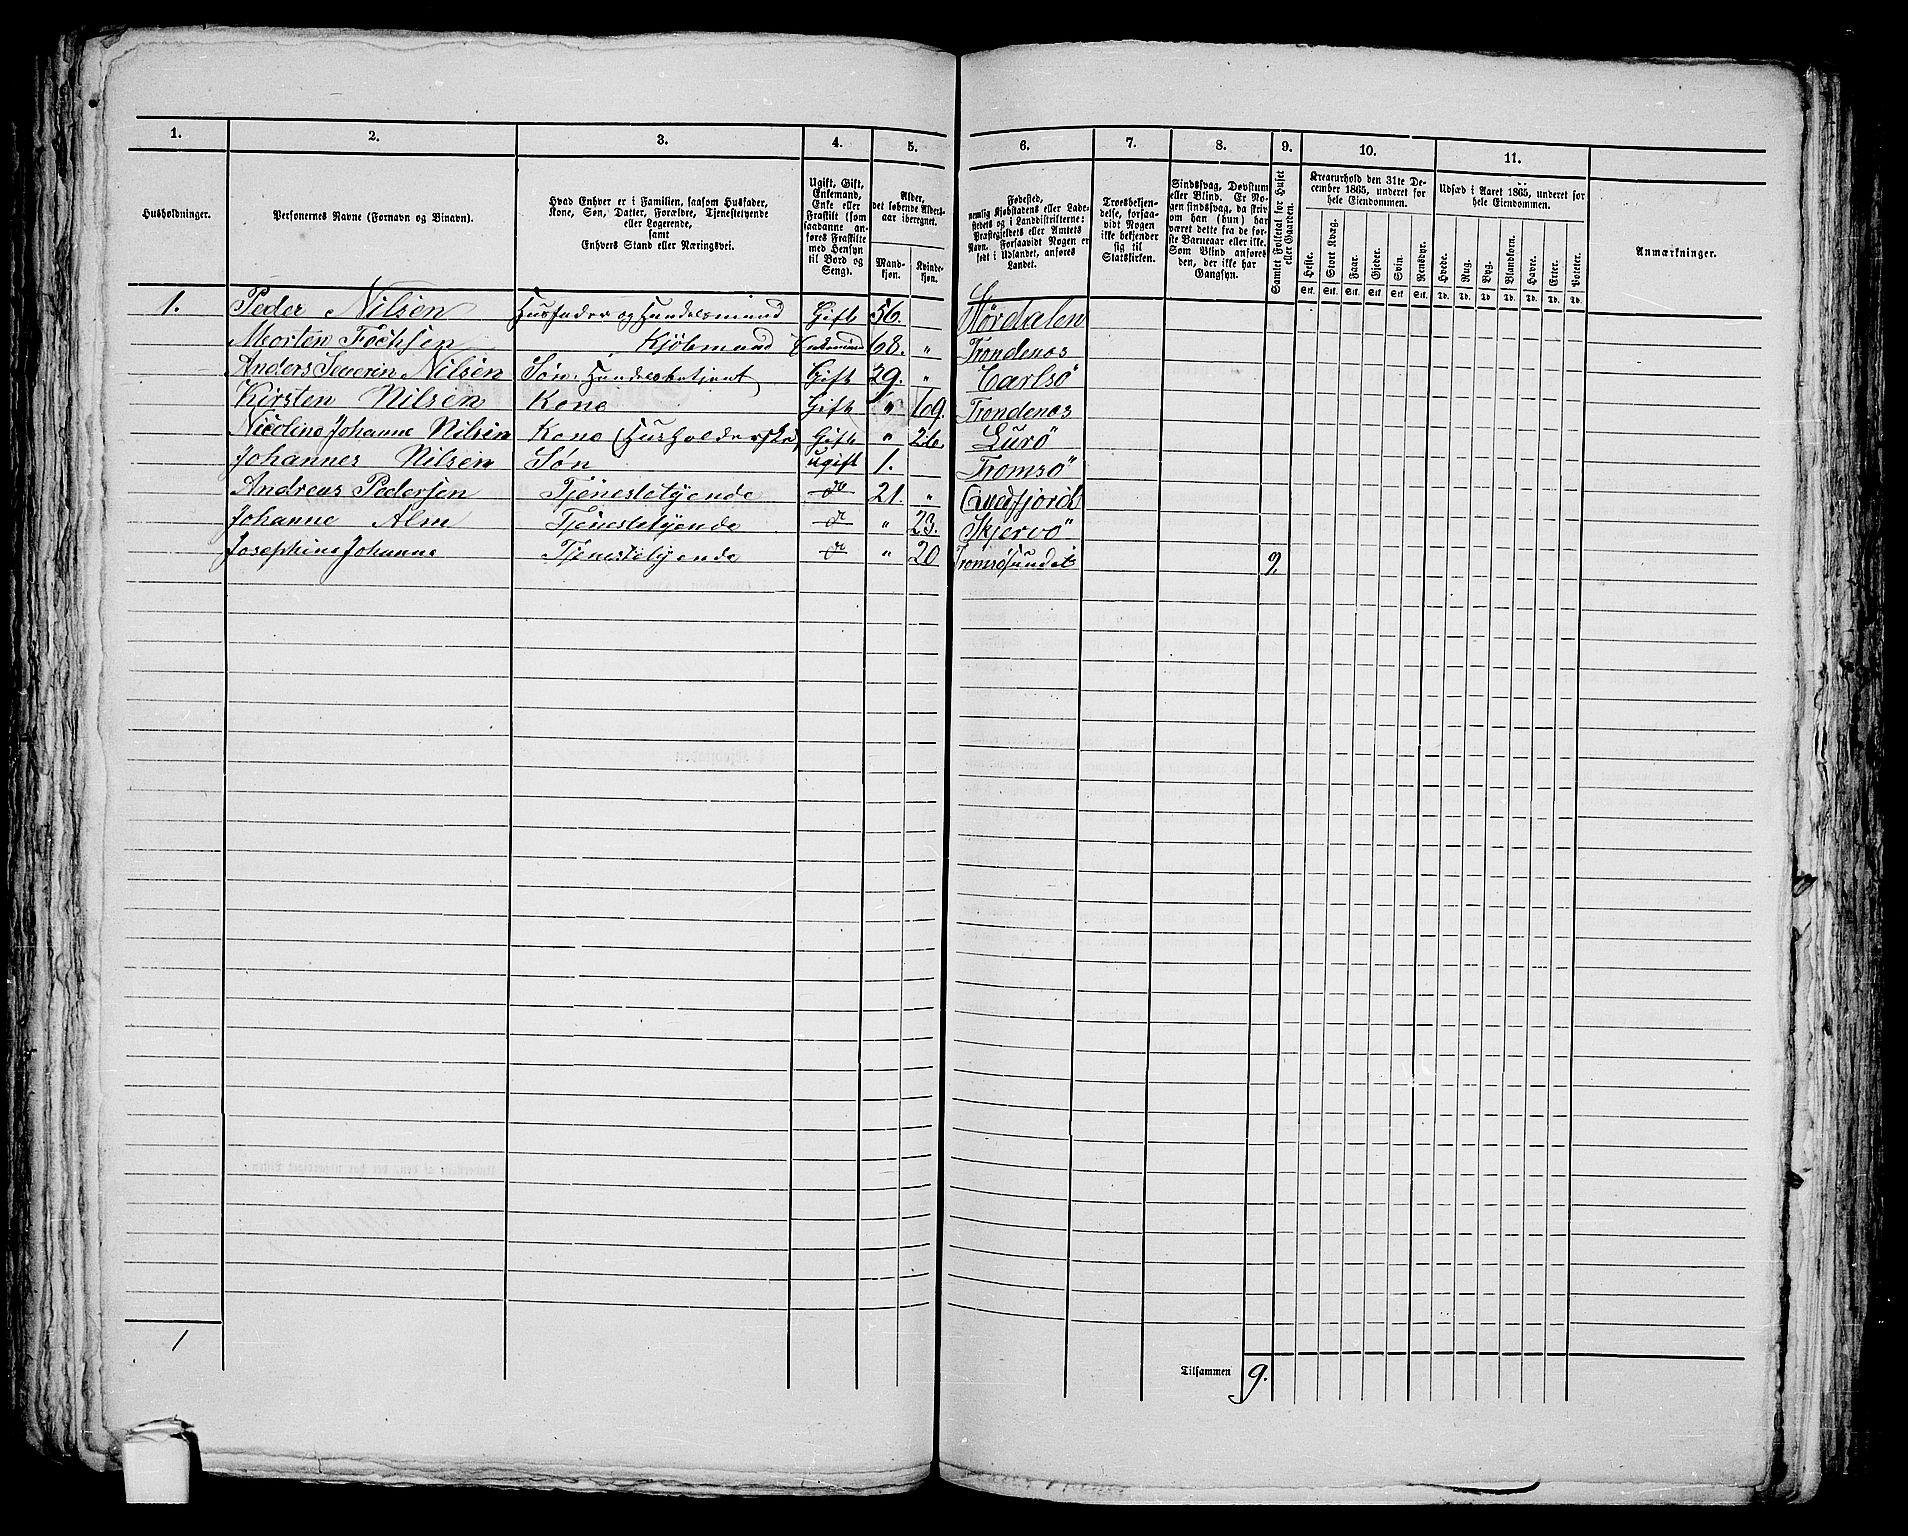 1. 2. 3. 4. 5. 6. 7. 8. 9. 10. 11.
Husholdninger.
Personernes Navne (Fornavn og Binavn).
Hvad Enhver er i Familien, saasom Husfader,
Kone, Søn, Datter, Forældre, Tjenestetyende
eller Logerende,
samt
Enhvers Stand eller Næringsvei.
Ugift, Gift,
Enkemand,
Enke eller
Fraskilt (som
saadanne an-
føres Fraskilte
med Hensyn
til Bord og
Seng).
Alder,
det løbende Alders-
aar iberegnet.
Mand-
kjøn.
Kvinde-
kjøn.
Fødested,
nemlig Kjøbstadens eller Lade-
stedets og i Landdistrikterne:
Præstegjeldets eller Amtets
Navn. Forsaavidt Nogen er
født i Udlandet, anføres
Landet.
Troesbekjen-
delse, forsaa-
vidt Nogen
ikke bekjender
sig til
Statskirken.
Sindssvag, Døvstum
eller Blind. Er No-
gen sindssvag, da skri-
ves om han (hun) har
været dette fra de før-
ste Barneaar eller ikke.
Som Blind anføres
den, der ikke har
Gangsyn.
Samlet Folketal for Huset
eller Gaarden.
Kreaturhold den 31te De-
cember 1865, underet for
hele Eiendommen.
Heste. Stort Kvæg. Faar. Gjeder. Svin. Rensdyr.
Stk. Stk. Stk. Stk. Stk. Stk.
Udsæd i Aaret 1865, underet for
hele Eiendommen.
Hvede. Rug. Byg. Blandkorn. Havre. Erter. Poteter.
Td. Td. Td. Td. Td. Td. Td.
Anmærkninger.
1. Peder Nilsen Husfader og Handelsmand Gift 56. Størdalen
Morten Kjøbmand Enkemand 68. " Trondenæs
Anders Severin Nilsen Søn. Handelsbetjent Gift 29. " Carlsö
Kirsten Nilsen Kone Gift " 69. Trondenæs
Nicoline Johanne Nilsen Kone (Husholderske) Gift " 26 Lurö
Johannes Nilsen Søn ugift 1. Tromsö
Andreas Pedersen Tjenestetyende do 21. " Qvedfjord
Johanne Alm Tjenestetyende do " 23. Skjervö
Josephine Johanne Tjenestetyende do " 20 Tromsösundet 9
1
Tilsammen 9.